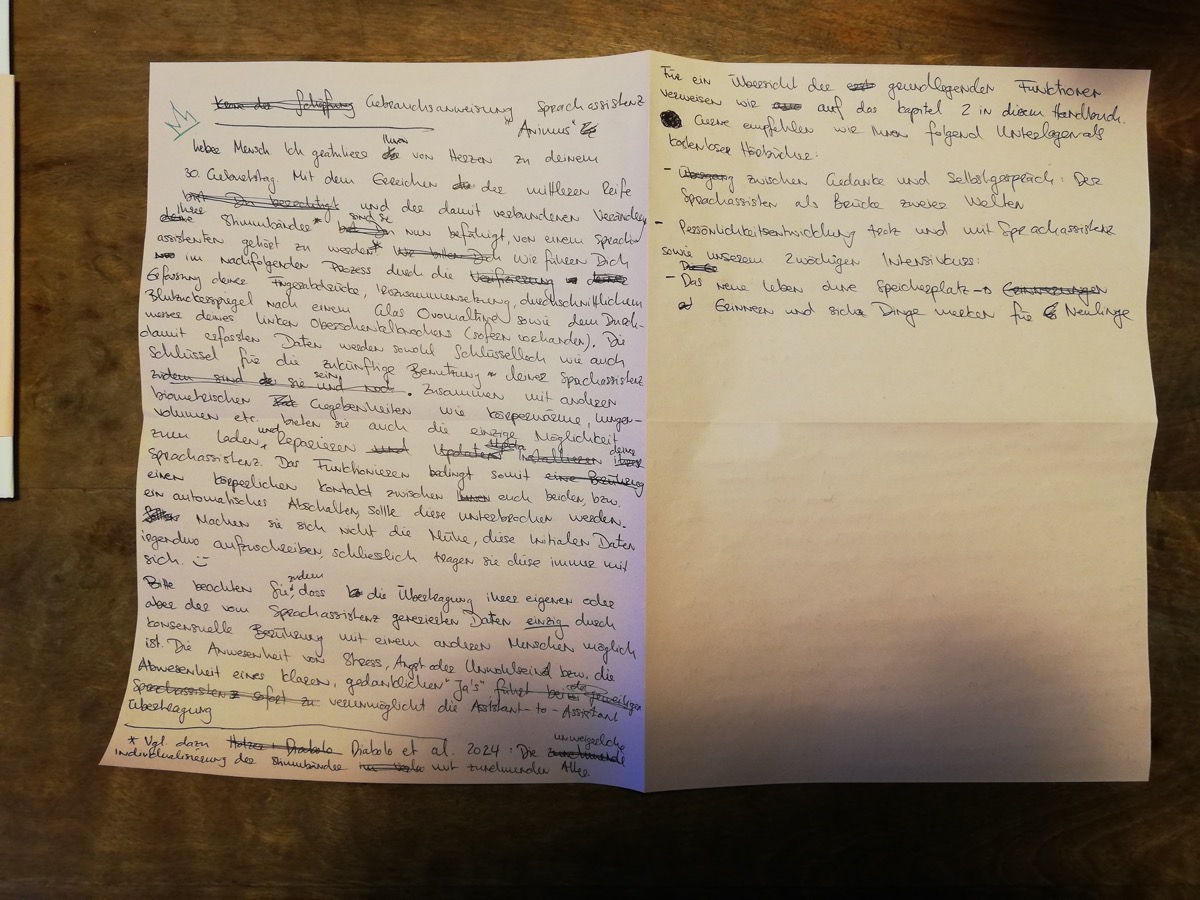 Krone der Schöpfung Gebrauchsanweisung Sprachassistenz
"Animus"
Ihnen
Lieber Mensch. Ich gratuliere dir von Herzen zu deinem
30. Geburtstag. Mit dem Erreichen der mittleren Reife
bist Du berechtigt und der damit verbundenen Veränderung
ihrer sind sie
deine Stimmbänder* bist Du nun befähigt, von einem Sprach-
assistenten gehört zu werden*. Wir bitten Dich Wir führen Dich
im nachfolgenden Prozess durch die Verifizierung deiner
Erfassung deiner Fingerabdrücke, Irizusammensetzung, durchschnittlichem
Blutzuckerspiegel nach einem Glas Ovomaltine sowie dem Durch-
messer deines linken Oberschenkelknochens (sofern vorhanden). Die
damit erfassten Daten werden sowohl Schlüsselloch wie auch
Schlüssel für die zukünftige Benutzung deiner Sprachassistenz
sein.
zudem sind sie und noch Zusammen mit anderen
biometrischen Gegebenheiten wie Körperwärme, Lungen-
volumen etc. bieten sie auch die einzige Möglichkeit
und deiner
zum Laden, Reparieren und Updaten Installieren ihrer
Sprachassistenz. Das Funktionieren bedingt somit eine Berührung
einen körperlichen Kontakt zwischen Ihnen euch beiden, bzw.
ein automatisches Abschalten, sollte diese unterbrochen werden.
Machen sie sich nicht die Mühe, diese Initialen Daten
irgendwo aufzuschreiben, schliesslich tragen sie diese immer mit
sich. :)
zudem
Bitte beachten Sie, dass die Übertragung ihrer eigenen oder
aber der vom Sprachassistenz generierten Daten einzig durch
konsensuelle Berührung mit einem anderen Menschen möglich
ist. Die Anwesenheit von Stress, Angst oder Unwohlsein bzw. die
Abwesenheit eines klaren, gedanklichen "Ja's" führt bei jeweiligen
Sprachassistenz sofort zu verunmöglicht die Assistant-to-Assistant
Übertragung
unweigerliche
* Vgl. dazu Diabolo Diabolo et al. 2024. Die zunehmende
Individualisierung der Stimmbänder mit zunehmenden Alter
Für ein Übersicht der grundlegenden Funktionen
verweisen wir auf das Kapitel 2 in diesem Handbuch.
Gerne empfehlen wir Ihnen folgend Unterlagen als
kostenloser Hörbücher:
- Übergang zwischen Gedanke und Selbstgespräch: Der
Sprachassisten als Brücke zweier Welten
- Persönlichkeitsentwicklung trotz und mit Sprachassistenz
sowie unserem 2wöchigen Intensivkurs:
- Das neue Leben ohne Speicherplatz → Erinnerungen
Erinnern und sich Dinge merken für Neulinge